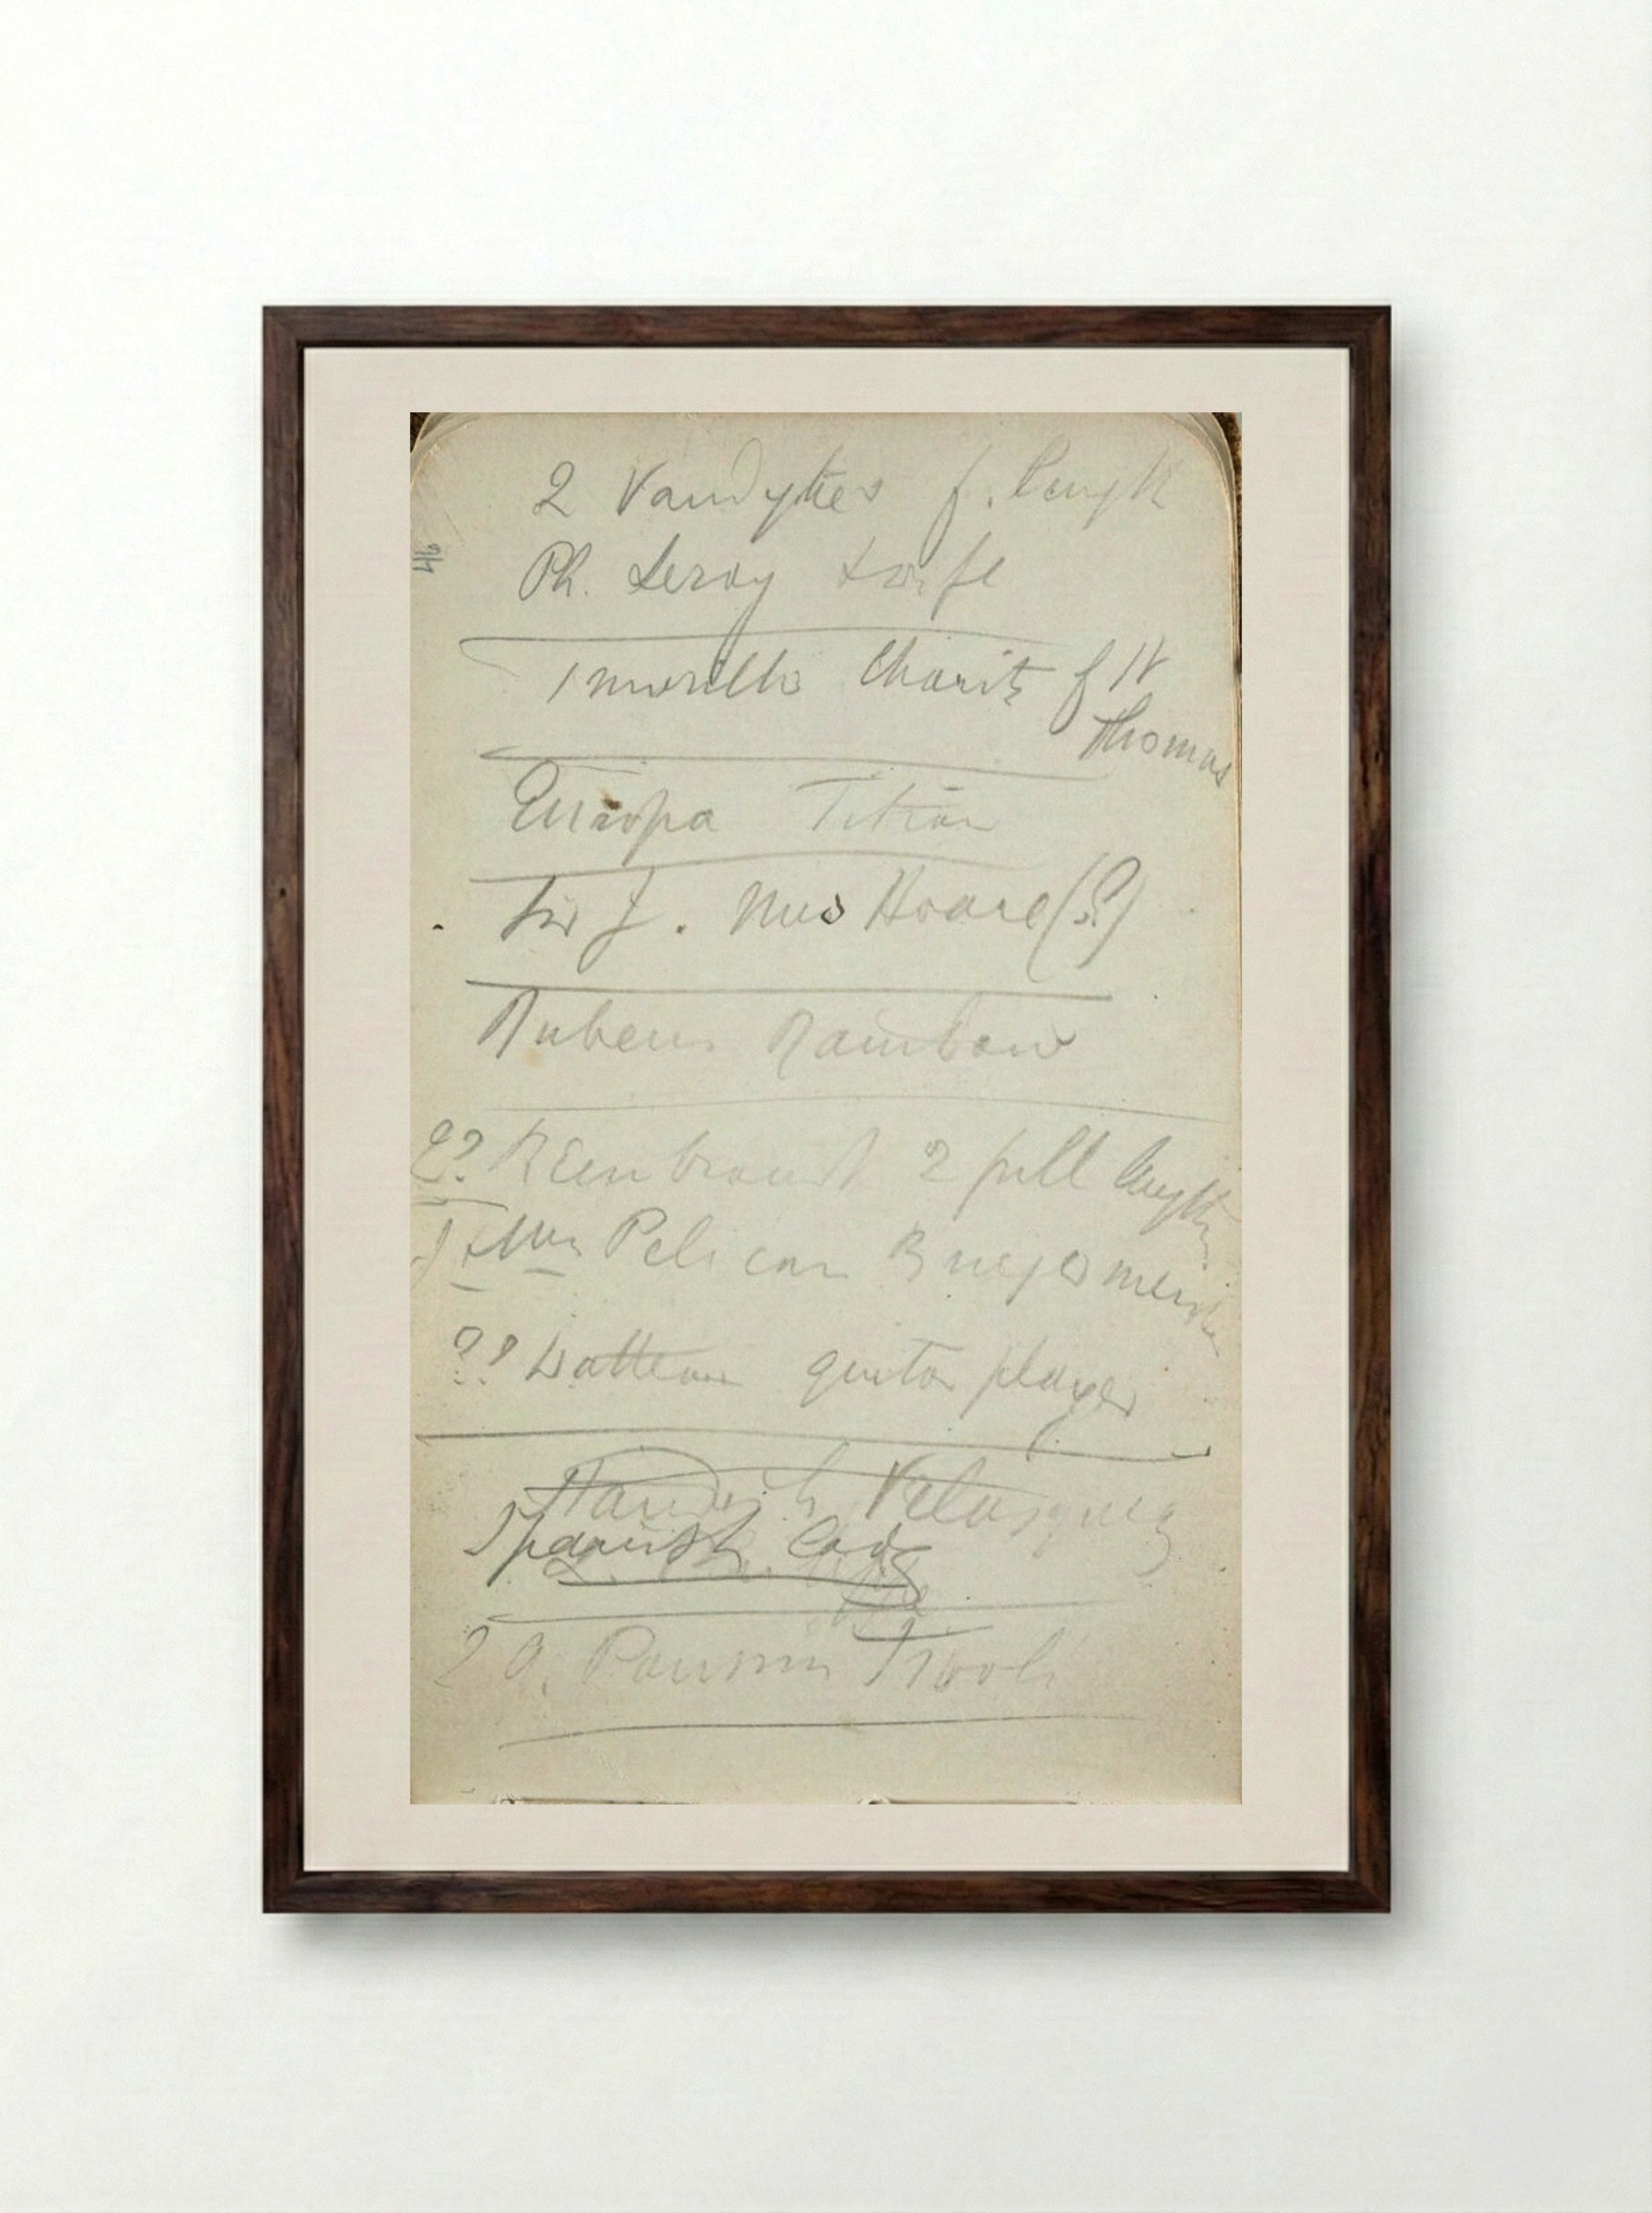 2 Vandykes f. length
Ph. Leroy & wife
1 murillo Charity of St
Thomas
Europa Titian
Sir J. Mrs Hoare (?)
Rubens Rainbow
?? Rembrandt 2 full lengths
J & Mrs Pelican Burgomeister
?? Watteau guitar player
Standish Velasquez
Spanish Lady
2 G. Poussin Tivoli